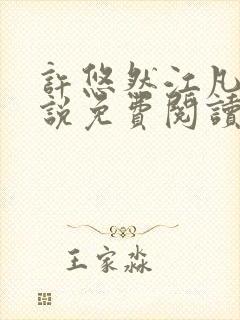 許悠然江凡
說免費閱讀
王家淼